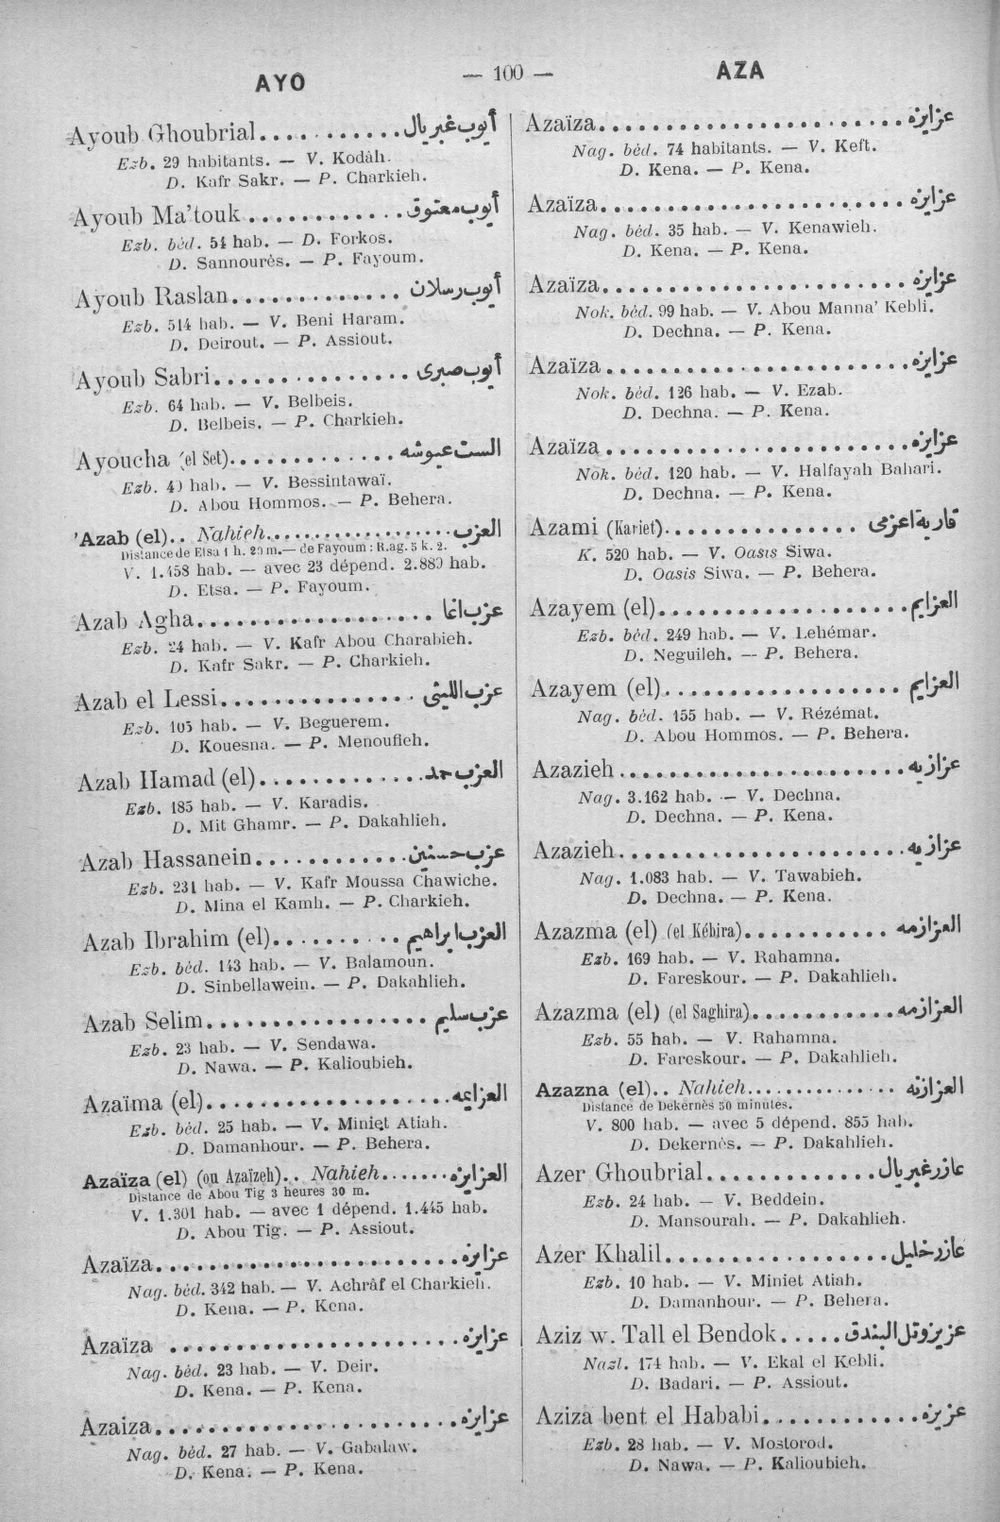 AYO
— 100 —
AZA
Ayoub Ghoubrial............أيوب غبريال
Ezb. 29 habitants. — V. Kodâh.
D. Kafr Sakr. — P. Charkieh.
Ayoub Ma'touk............أيوب معتوق
Ezb. bèd. 54 hab. — D. Forkos.
D. Sannourès. — P. Fayoum.
Ayoub Raslan.............أيوب رسلان
Ezb. 514 hab. — V. Beni Haram.
D. Deirout. — P. Assiout.
Ayoub Sabri...............أيوب صبرى
Ezb. 64 hab. — V. Belbeis.
D. Belbeis. — P. Charkieh.
Ayoucha (el Set).............الست عيوشه
Ezb. 40 hab. — V. Bessintawaï.
D. Abou Hommos. — P. Behera.
'Azab (el).. Nahieh...............العزب
Distance de Elsa 1 h. 20 m.— de Fayoum : R.ag. 5 k. 2.
V. 1.458 hab. — avec 23 dépend. 2.889 hab.
D. Etsa. — P. Fayoum.
Azab Agha..................عزب اغا
Ezb. 24 hab. — V. Kafr Abou Charabieh.
D. Kafr Sakr. — P. Charkieh.
Azab el Lessi...............عزب الليثى
Ezb. 105 hab. — V. Beguerem.
D. Kouesna. — P. Menoufieh.
Azab Hamad (el).............العزب حمد
Ezb. 185 hab. — V. Karadis.
D. Mit Ghamr. — P. Dakahlieh.
Azab Hassanein............عزب حسنين
Ezb. 231 hab. — V. Kafr Moussa Chawiche.
D. Mina el Kamh. — P. Charkieh.
Azab Ibrahim (el)..........العزب ابراهيم
Ezb. bèd. 143 hab. — V. Balamoun.
D. Sinbellawein. — P. Dakahlieh.
Azab Selim.................عزب سليم
Ezb. 23 hab. — V. Sendawa.
D. Nawa. — P. Kalioubieh.
Azaïma (el)...................العزايمه
Ezb. bèd. 25 hab. — V. Miniet Atiah.
D. Damanhour. — P. Behera.
Azaïza (el) (ou Azaïzeh).. Nahieh.......العزايزه
Distance de Abou Tig 3 heures 30 m.
V. 1.301 hab. — avec 1 dépend. 1.445 hab.
D. Abou Tig. — P. Assiout.
Azaïza.......................عزايزه
Nag. bèd. 342 hab. — V. Achrâf el Charkieh.
D. Kena. — P. Kena.
Azaïza ......................عزايزه
Nag. bèd. 23 hab. — V. Deir.
D. Kena. — P. Kena.
Azaiza.......................عزايزه
Nag. bèd. 27 hab. — V. Gabalaw.
D. Kena. — P. Kena.
Azaïza.......................عزايزه
Nag. bèd. 74 habitants. — V. Keft.
D. Kena. — P. Kena.
Azaïza.......................عزايزه
Nag. bèd. 35 hab. — V. Kenawieh.
D. Kena. — P. Kena.
Azaïza.......................عزايزه
Nok. bèd. 99 hab. — V. Abou Manna' Kebli.
D. Dechna. — P. Kena.
Azaïza.......................عزايزه
Nok. bèd. 126 hab. — V. Ezab.
D. Dechna. — P. Kena.
Azaïza.......................عزايزه
Nok. bèd. 120 hab. — V. Halfayah Bahari.
D. Dechna. — P. Kena.
Azami (Kariet)...............قارية اعزمى
K. 520 hab. — V. Oasis Siwa.
D. Oasis Siwa. — P. Behera.
Azayem (el)...................العزايم
Ezb. bèd. 249 hab. — V. Lehémar.
D. Neguileh. — P. Behera.
Azayem (el)..................العزايم
Nag. bèd. 155 hab. — V. Rézémat.
D. Abou Hommos. — P. Behera.
Azazieh......................عزازيه
Nag. 3.162 hab. — V. Dechna.
D. Dechna. — P. Kena.
Azazieh......................عزازيه
Nag. 1.083 hab. — V. Tawabieh.
D. Dechna. — P. Kena.
Azazma (el) (el Kébira)...........العزازمه
Ezb. 169 hab. — V. Rahamna.
D. Fareskour. — P. Dakahlieh.
Azazma (el) (el Saghira)...........العزازمه
Ezb. 55 hab. — V. Rahamna.
D. Fareskour. — P. Dakahlieh.
Azazna (el).. Nahieh...............العزازنه
Distance de Dekernès 50 minutes.
V. 800 hab. — avec 5 dépend. 855 hab.
D. Dekernès. — P. Dakahlieh.
Azer Ghoubrial.............عازر غبريال
Ezb. 24 hab. — V. Beddein.
D. Mansourah. — P. Dakahlieh.
Azer Khalil.................عازر خليل
Ezb. 10 hab. — V. Miniet Atiah.
D. Damanhour. — P. Behera.
Aziz w. Tall el Bendok.....عزيز وتل البندق
Nazl. 174 hab. — V. Ekal el Kebli.
D. Badari. — P. Assiout.
Aziza bent el Hababi............عزيزه
Ezb. 28 hab. — V. Mostorod.
D. Nawa. — P. Kalioubieh.